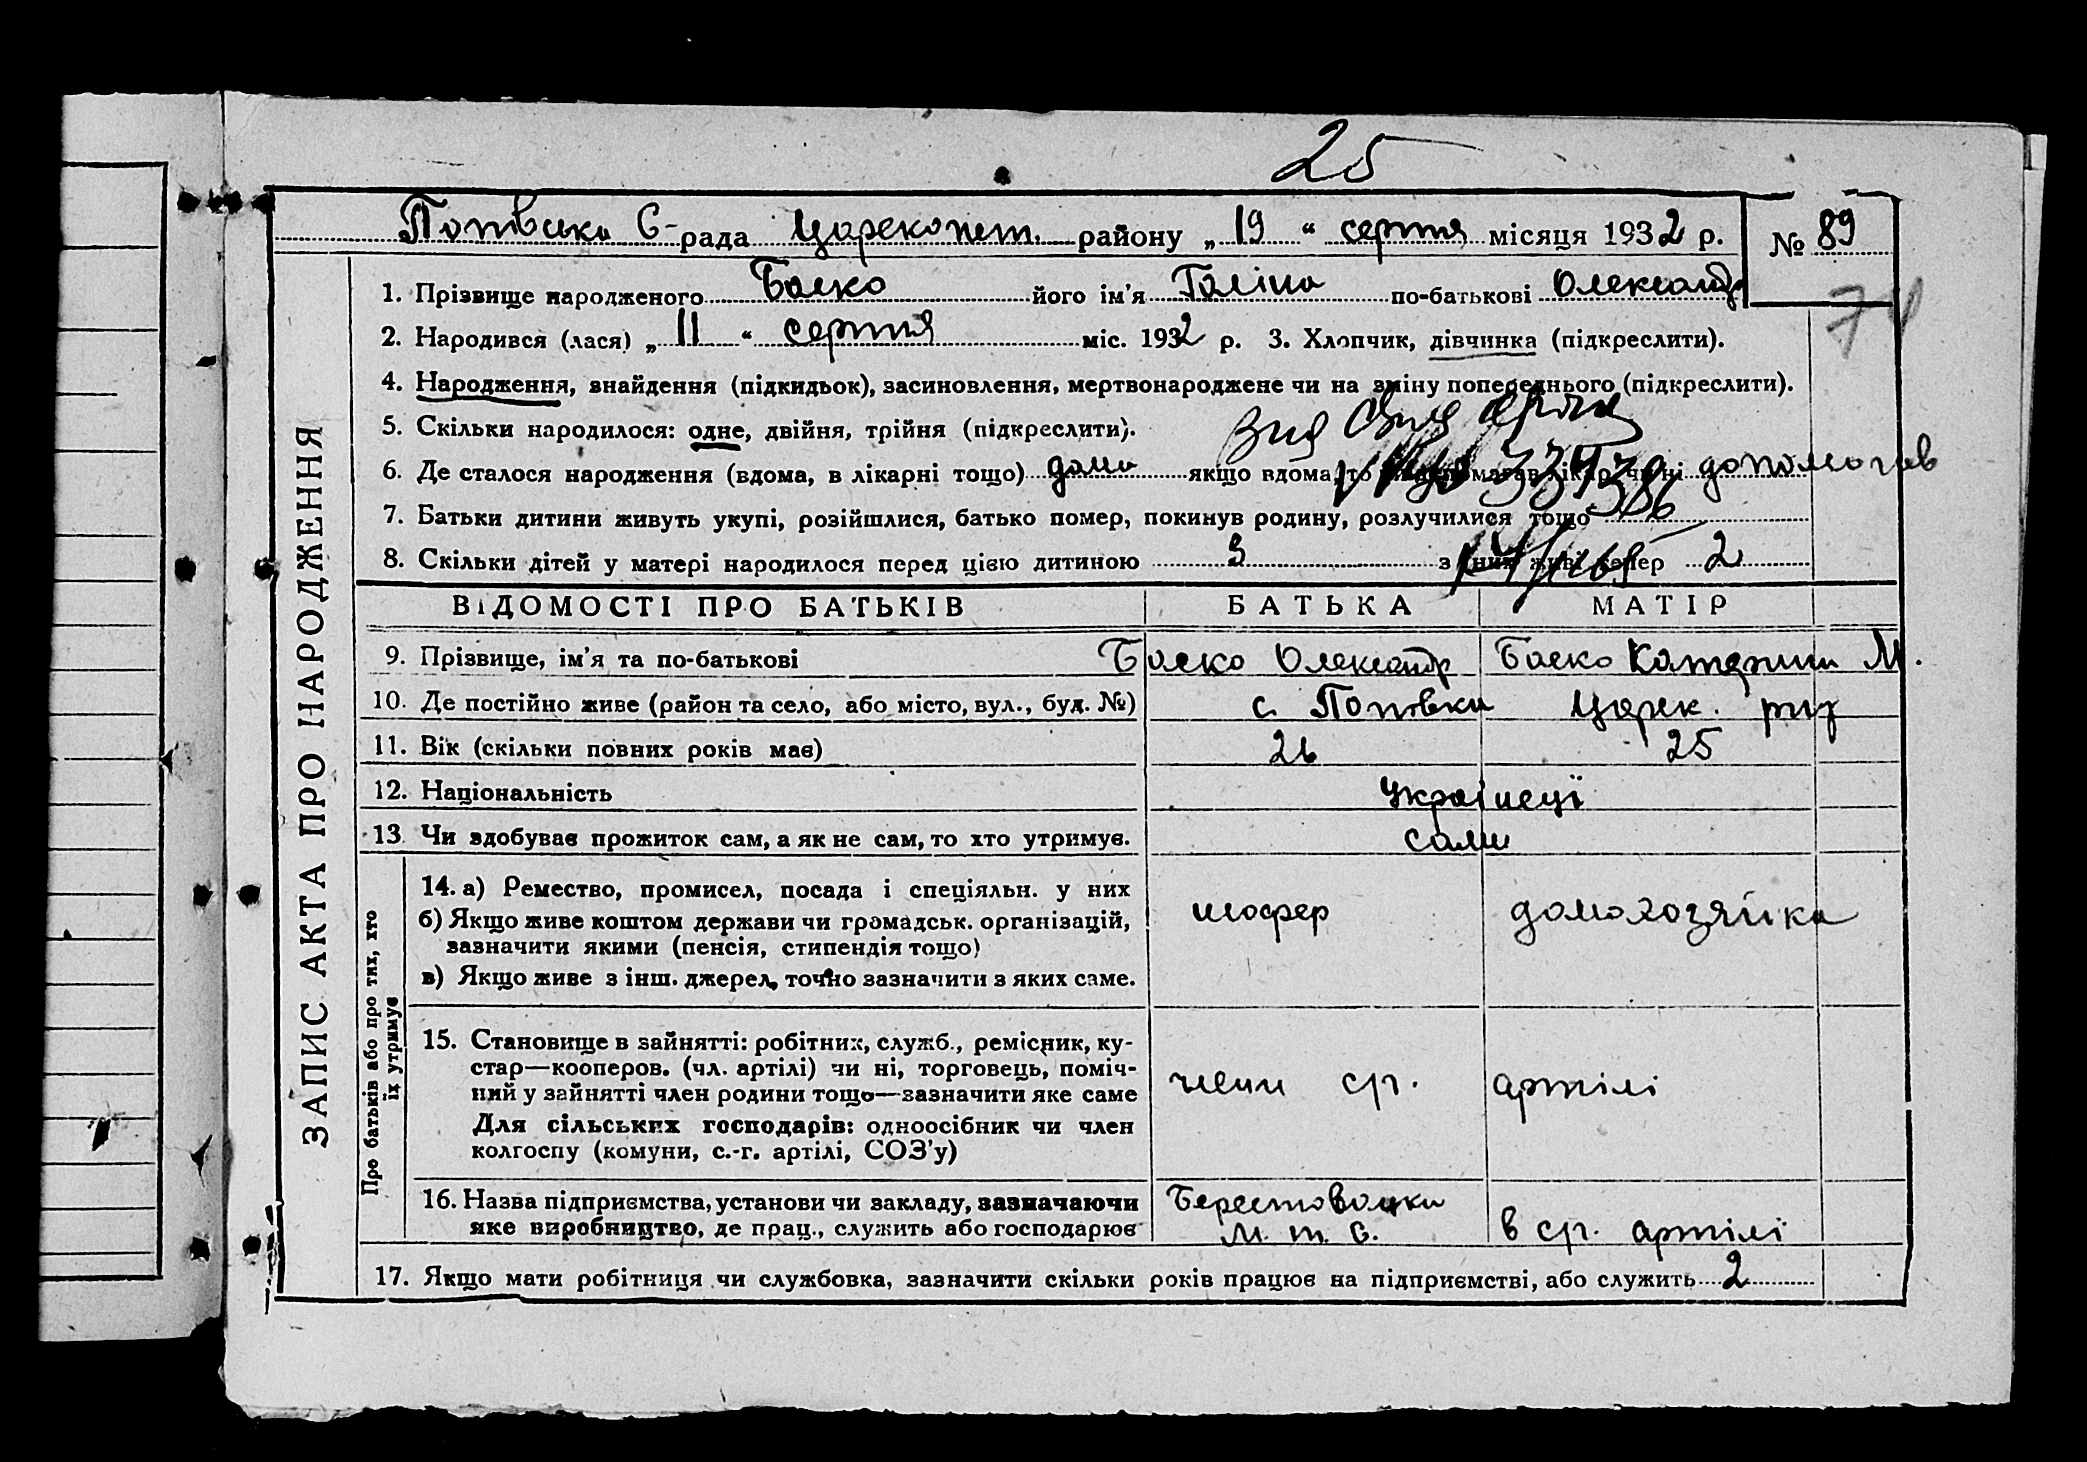 25
Попівська С-рада Царекопст. району „19“ серпня місяця 1932 р. № 89
71
1. Прізвище народженого Баско його ім'я Галіна по-батькові Олександр
2. Народився (лася) „11“ серпня міс. 1932 р. 3. Хлопчик, дівчинка (підкреслити).
4. Народження, знайдення (підкидьок), засиновлення, мертвонароджене чи на зміну попереднього (підкреслити).
5. Скільки народилося: одне, двійня, трійня (підкреслити).
6. Де сталося народження (вдома, в лікарні тощо) дома якщо вдома, то чи допомагав лікар чи ні допомогав
7. Батьки дитини живуть укупі, розійшлися, батько помер, покинув родину, розлучилися тощо
8. Скільки дітей у матері народилося перед цією дитиною 3 з них живі тепер 2
ВІДОМОСТІ ПРО БАТЬКІВ БАТЬКА МАТІР
9. Прізвище, ім'я та по-батькові Баско Олександр Баско Катерина М.
10. Де постійно живе (район та село, або місто, вул., буд. №) с. Попівки Царек. рну
11. Вік (скільки повних років має) 26 25
12. Національність Українеці
13. Чи здобуває прожиток сам, а як не сам, то хто утримує. сами
14. а) Ремество, промисел, посада і спеціяльн. у них
б) Якщо живе коштом держави чи громадськ. організацій,
зазначити якими (пенсія, стипендія тощо)
шофер домохозяйка
в) Якщо живе з інш. джерел, точно зазначити з яких саме.
15. Становище в зайнятті: робітник, служб., ремісник, ку-
стар—кооперов. (чл. артілі) чи ні, торговець, поміч-
ний у зайнятті член родини тощо—зазначити яке саме
Для сільських господарів: одноосібник чи член
колгоспу (комуни, с.-г. артілі, СОЗ'у)
члени с/г. артілі
16. Назва підприємства, установи чи закладу, зазначаючи
яке виробництво, де прац., служить або господарює
Берестовецки
М. т. С. в с/г. артілі
17. Якщо мати робітниця чи службовка, зазначити скільки років працює на підприємстві, або служить 2
ЗАПИС АКТА ПРО НАРОДЖЕННЯ
Про батьків або про тих, хто
їх утримує